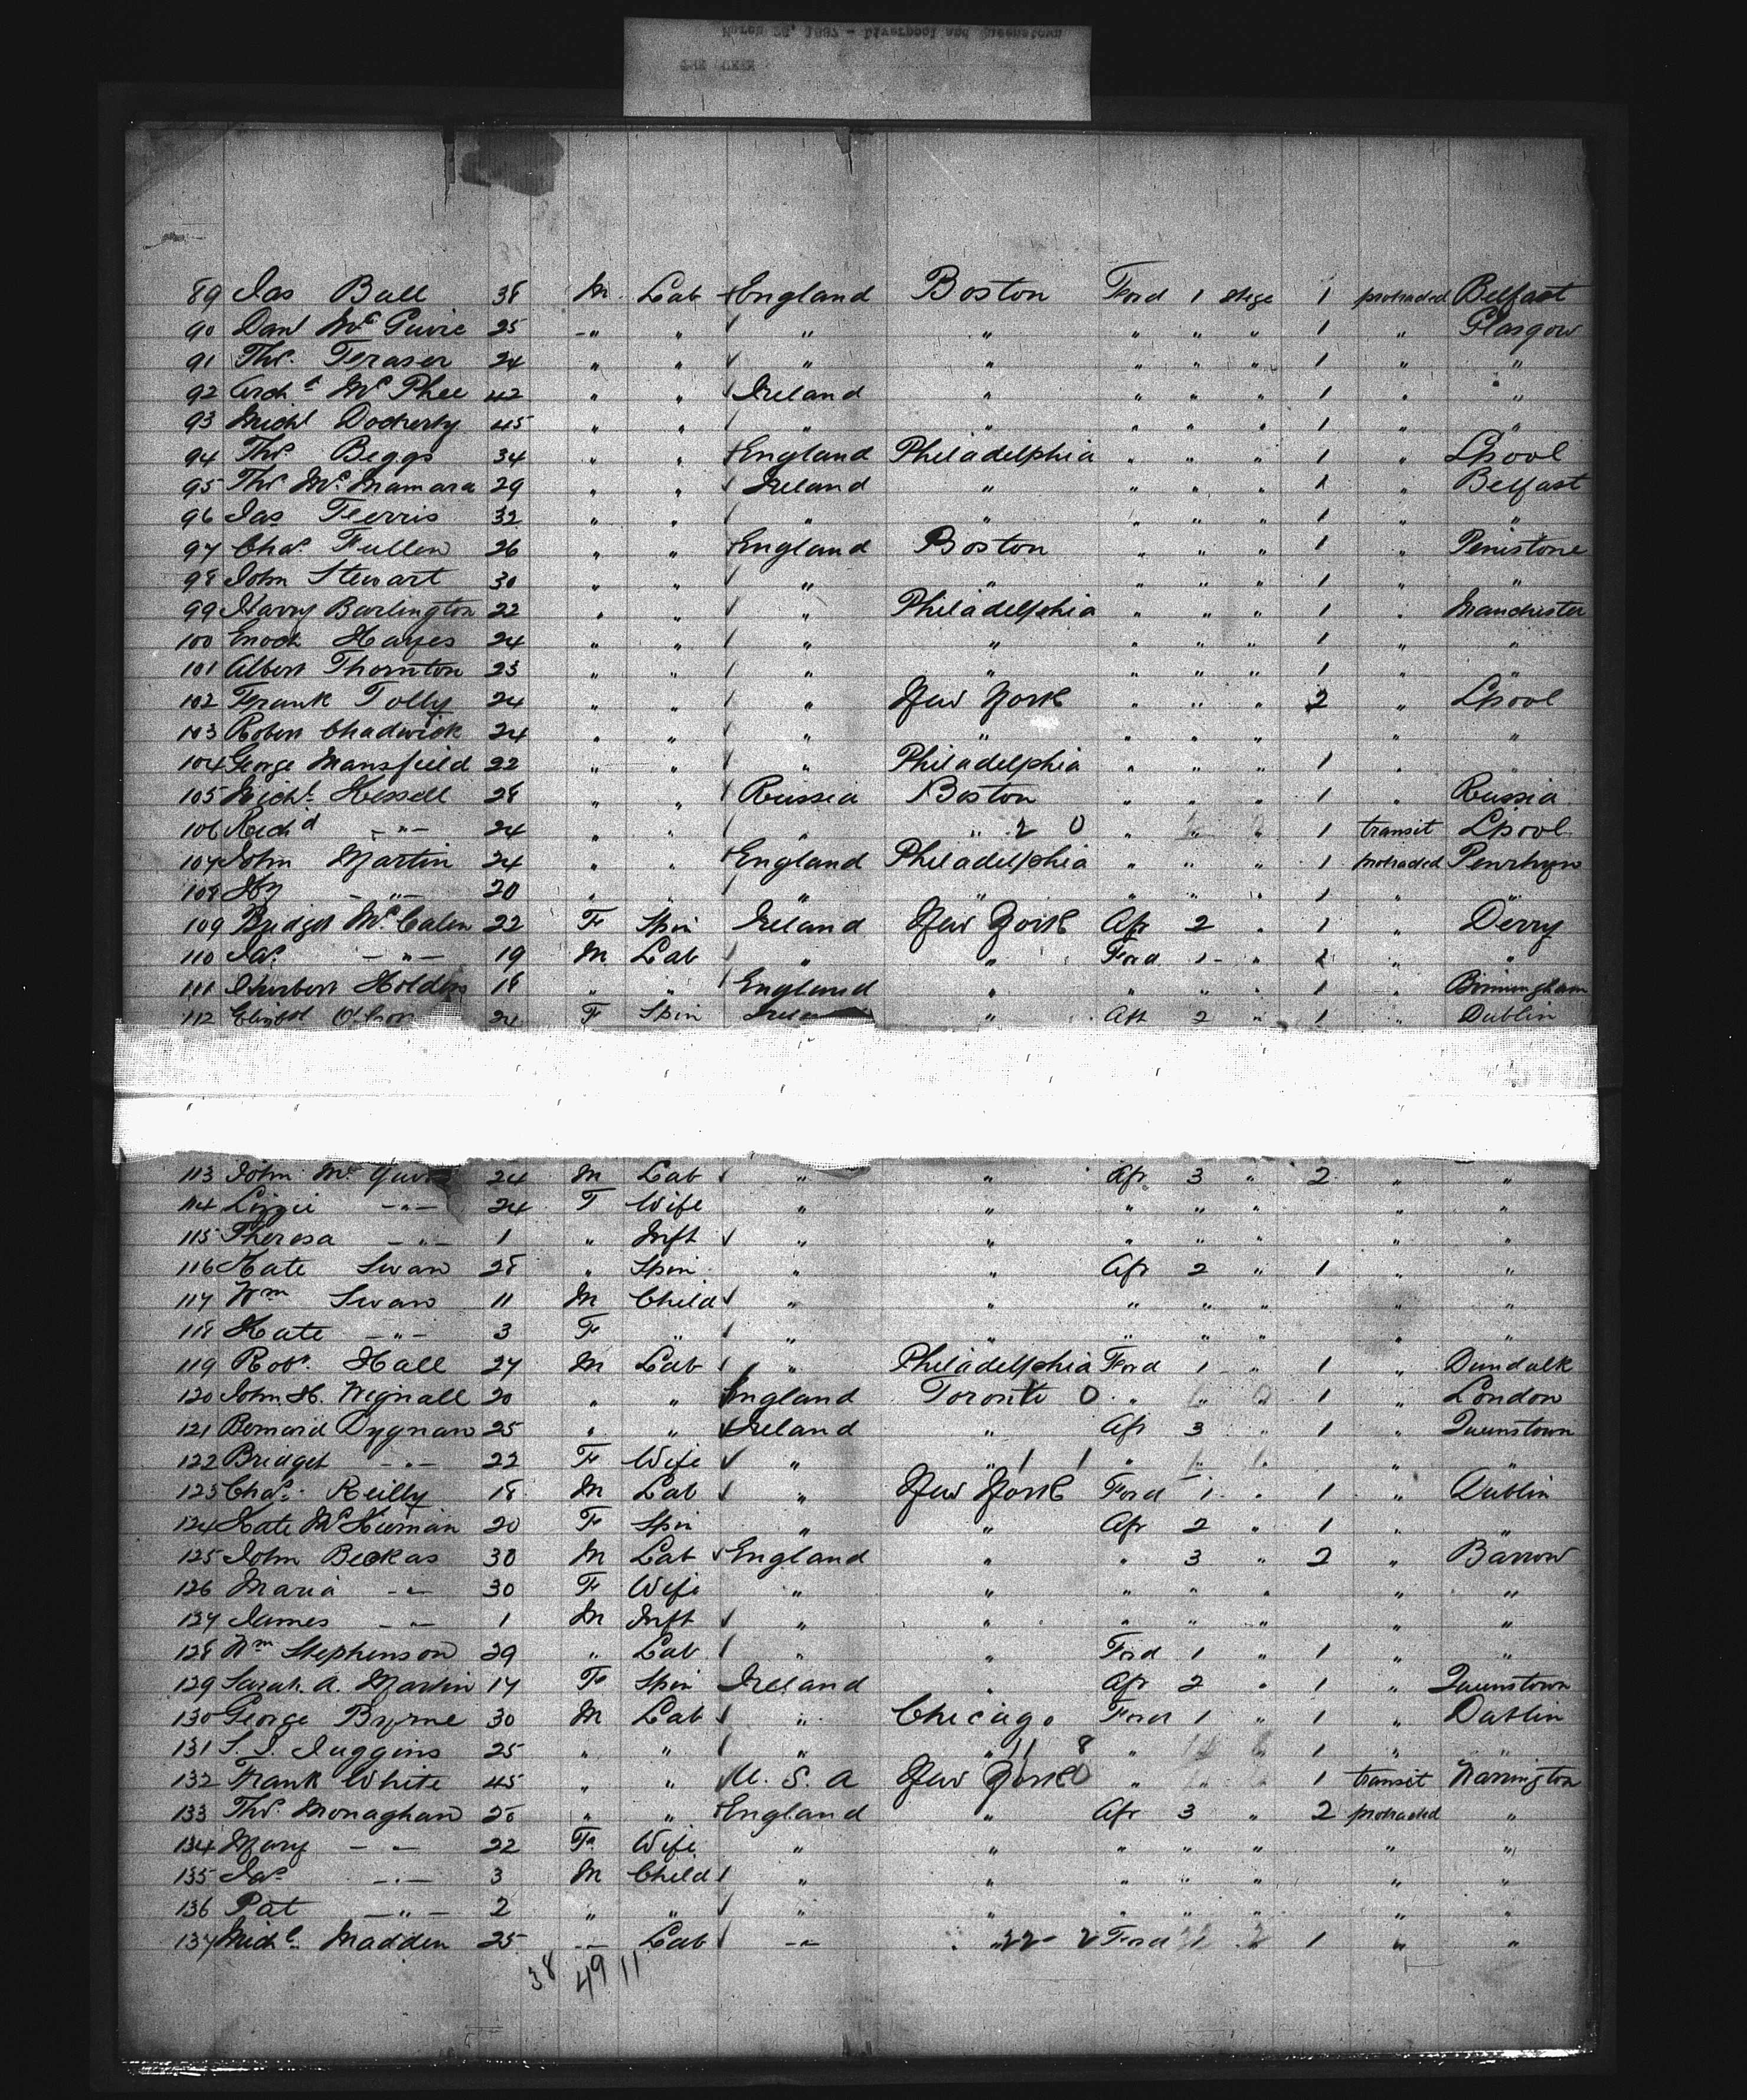 March 26, 1887 - Liverpool and Queenstown
89 Jas Ball 38 M. Lab England Boston Ford 1 stge 1 protracted Belfast
90 Danl Mc Guire 25 " " " " " " " 1 " Glasgow
91 Thos. Fraser 24 " " " " " " " 1 " "
92 Archd Mc Phee 42 " " Ireland " " " " 1 " "
93 Michl Docherty 45 " " " " " " " 1 " "
94 Thos. Beggs 34 " " England Philadelphia " " " 1 " Lpool
95 Thos Mc Namara 29 " " Ireland " " " " 1 " Belfast
96 Jas Ferris 32 " " " " " " " 1 " "
97 Chas. Fullen 26 " " England Boston " " " 1 " Penistone
98 John Stewart 30 " " " " " " " 1 " "
99 Harry Burlington 22 " " " Philadelphia " " " 1 " Manchester
100 Enoch Hayes 24 " " " " " " " 1 " "
101 Albert Thornton 23 " " " " " " " 1 " "
102 Frank Tolly 24 " " " New York " " " 2 " Lpool
103 Robert Chadwick 24 " " " " " " " " "
104 George Mansfield 22 " " " Philadelphia " " " 1 " "
105 Michl. Hessell 28 " " Russia Boston " " " 1 " Russia
106 Richd -"- 24 " " " 2 0 " " " 1 transit Lpool
107 John Martin 24 " " England Philadelphia " " " 1 protracted Penrhyn
108 Hy -"- 20 " " " " " " " 1 " "
109 Bridget Mc. Calen 22 F Spin Ireland New York Aft 2 " 1 " Derry
110 Jas. -"- 19 M Lab " " Ford 1 " 1 " "
111 Herbert Holden 18 " " England " " " " 1 " Birmingham
112 24 F Spin Ireland " Aft 2 " 1 " Dublin
113 John Mc 24 M Lab " " Aft 3 " 2 " "
114 Lizzie -"- 24 F Wife " " " " " " "
115 Theresa -"- 1 " Inft " " " " " " "
116 Kate Swan 28 " Spin " " Aft 2 " 1 " "
117 Wm Swan 11 M Child " " " " " " "
118 Kate -"- 3 F " " " " " " " "
119 Robt. Hall 27 M Lab " Philadelphia Ford 1 " 1 " Dundalk
120 John H. Wignall 20 " " England Toronto 0 " " " 1 " London
121 Bernard Dygnan 25 " " Ireland " Aft 3 " 1 " Queenstown
122 Bridget -"- 22 F Wife " " 1 1 " " " " "
123 Chas. Reilly 18 M Lab " New York Ford 1 " 1 " Dublin
124 Kate McKiernan 20 F Spin " " Aft 2 " 1 " "
125 John Beckas 30 M Lab England " " 3 " 2 " Barrow
126 Maria -"- 30 F Wife " " " " " " "
127 James -"- 1 M Inft " " " " " " "
128 Wm Stephenson 29 " Lab " " Ford 1 " 1 " "
129 Sarah. A. Martin 17 F Spin Ireland " Aft 2 " 1 " Queenstown
130 George Byrne 30 M Lab " Chicago Ford 1 " 1 " Dublin
131 Juggins 25 " " " " 11 8 " " 1 " "
132 Frank White 45 " " U. S. A New York 0 " " " 1 transit Warrington
133 Thos. Monaghan 25 " " England " Aft 3 " 2 protracted "
134 Mary -"- 22 F. Wife " " " " " " "
135 Jas -"- 3 M Child " " " " " " "
136 Pat -"- 2 " " " " " " " " "
137 Michl. Madden 25 -"- Lab -"- " 22 - 2 Ford 1 " 1 " "
38 49 11